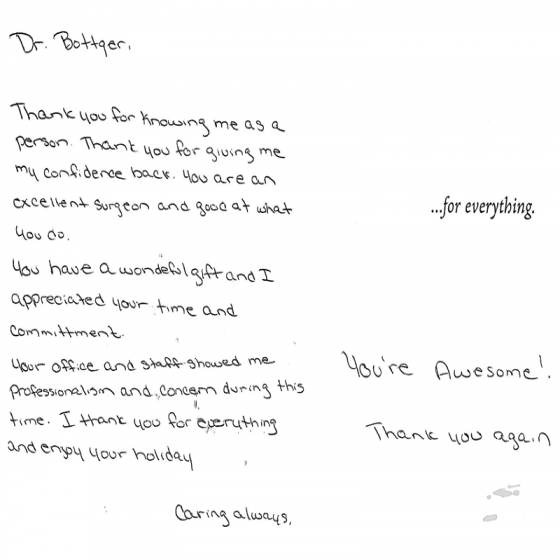 Dr. Bottger,
Thank you for knowing me as a
person. Thank you for giving me
my confidence back. You are an
excellent surgeon and good at what
you do.
You have a wondeful gift and I
appreciated your time and
committment.
Your office and staff showed me
professionalism and concern during this
time. I thank you for everything
and enjoy your holiday
Caring always,
...for everything.
You're Awesome!
Thank you again